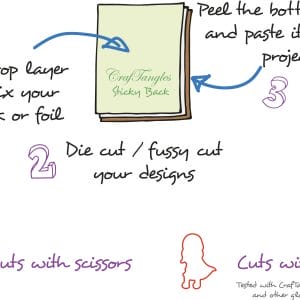 Peel the bott
and paste it
proje
3
op layer
ix your
k or foil
CrafTangles
Sticky Back
2
Die cut / fussy cut
your designs
uts with scissors
Cuts wi
Tested with CrafTa
and other gl